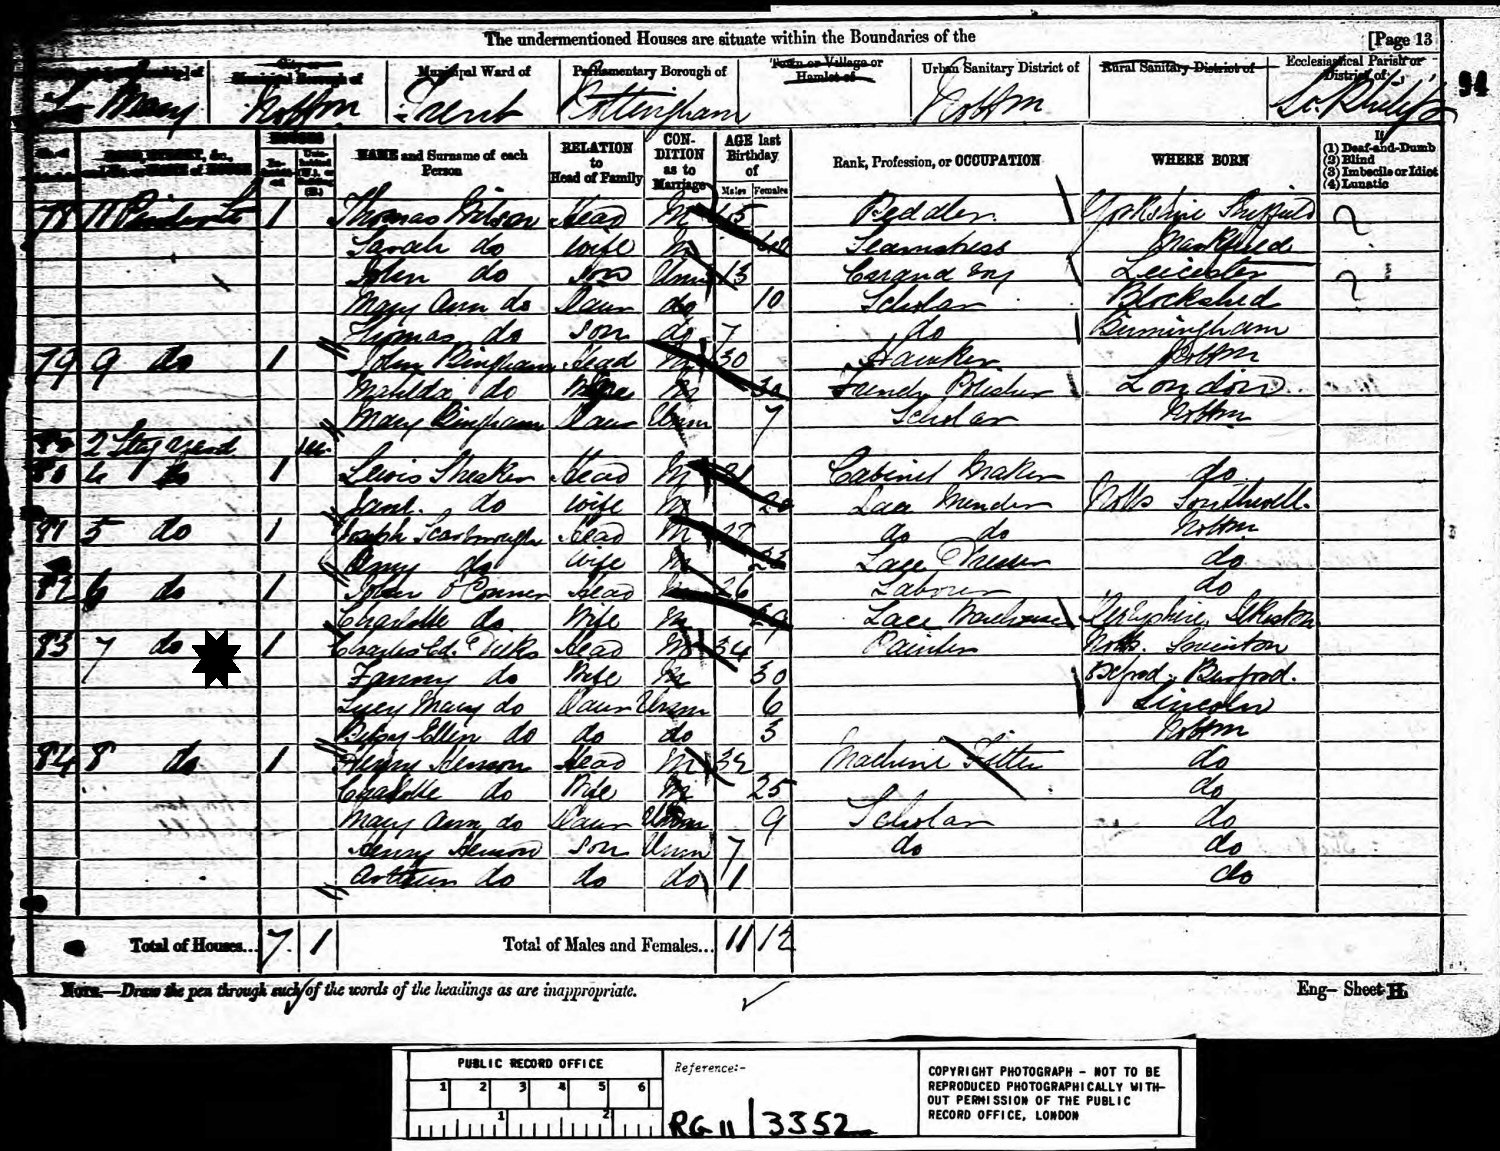 The undermentioned Houses are situate within the Boundaries of the
[Page 13
Municipal Borough of
Municipal Ward of
Parliamentary Borough of
Town or Village or Hamlet of
Urban Sanitary District of
Rural Sanitary District of
Ecclesiastical Parish or District of
94
St Mary
Nottm
Trent
Nottingham
Nottm
St. Philip's
ROAD, STREET, &c., and No. or NAME of HOUSE
HOUSES
NAME and Surname of each Person
RELATION to Head of Family
CONDITION as to Marriage
AGE last Birthday of
Males
Females
Rank, Profession, or OCCUPATION
WHERE BORN
If
(1) Deaf-and-Dumb
(2) Blind
(3) Imbecile or Idiot
(4) Lunatic
78 11 1 Thomas Wilson Head M 45 Peddler Yorkshire Sheffield
Sarah do Wife M Seamstress
John do Son Unm 13 Errand Boy Leicester
Mary Ann do Daur do 10 Scholar
Thomas do Son do 7 do Birmingham
79 9 do 1 John Bingham Head M 30 Hawker Nottm
Matilda do Wife M Polisher London
Mary Bingham Daur Unm 7 Scholar Nottm
2 Stag Yard
80 4 do 1 Lewis Head M 21 Cabinet Maker do
Jane do Wife M 20 Lace Mender Notts Southwell
81 5 do 1 Joseph Scarbrough Head M 22 do do Nottm
Amy do Wife M Lace Dresser do
82 6 do 1 John O'Conner Head M 26 Labourer do
Charlotte do Wife M 29 Lace Warehouse Derbyshire Ilkeston
83 7 do 1 Charles Ed. Dilks Head M 34 Painter Notts.
Fanny do Wife M 30
Lucy Mary do Daur Unm 6 Lincoln
Betsy Ellen do do do 3 Nottm
84 8 do 1 Henry Henson Head M 32 Machine Fitter do
Charlotte do Wife M 25 do
Mary Ann do Daur Unm 9 Scholar do
Henry Henson Son Unm 7 do do
Arthur do do do 1 do
Total of Houses... 7 1
Total of Males and Females... 11 12
NOTE.—Draw the pen through such of the words of the headings as are inappropriate.
Eng– Sheet H.
PUBLIC RECORD OFFICE
1 2 3 4 5 6
1 2
Reference:-
RG 11/3352
COPYRIGHT PHOTOGRAPH - NOT TO BE
REPRODUCED PHOTOGRAPHICALLY WITH-
OUT PERMISSION OF THE PUBLIC
RECORD OFFICE, LONDON